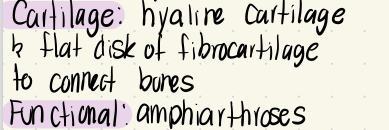 Cartilage: hyaline cartilage
& flat disk of fibrocartilage
to connect bones
Functional: amphiarthroses